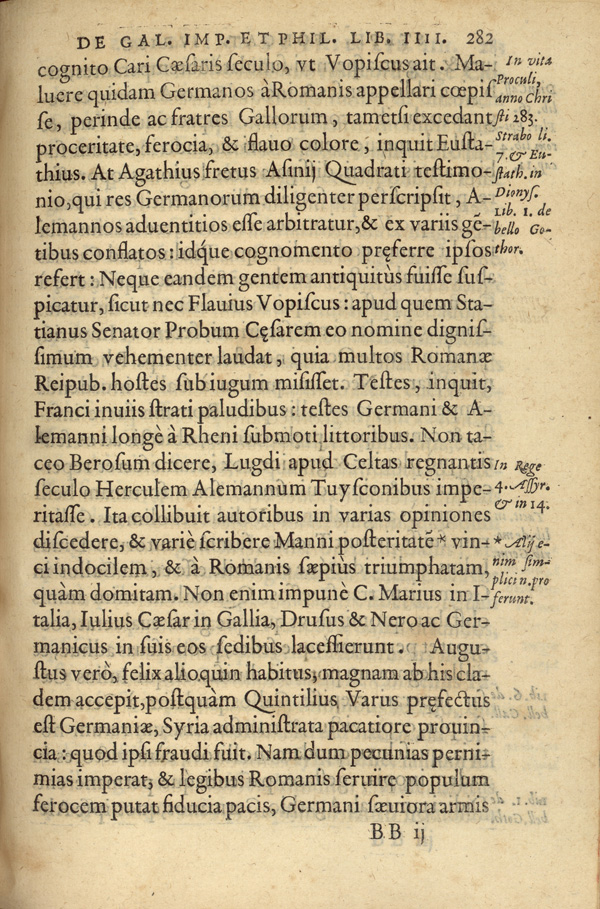 DE GAL. IMP. ET PHIL. LIB. IIII. 282
cognito Cari Cæſaris ſeculo, vt Vopiſcus ait. Ma-
luere quidam Germanos à Romanis appellari cœpiſ
ſe, perinde ac fratres Gallorum, tametſi excedant
proceritate, ferocia, & flauo colore, inquit Euſta-
thius. At Agathius fretus Aſinij Quadrati teſtimo-
nio, qui res Germanorum diligenter perſcripſit, A-
lemannos aduentitios eſſe arbitratur, & ex variis gē-
tibus conflatos: idq́ue cognomento pręferre ipſos
refert: Neque eandem gentem antiquitùs fuiſſe ſuſ-
picatur, ſicut nec Flauius Vopiſcus: apud quem Sta-
tianus Senator Probum Cęſarem eo nomine digniſ-
ſimum vehementer laudat, quia multos Romanæ
Reipub. hoſtes ſub iugum miſiſſet. Teſtes, inquit,
Franci inuiis ſtrati paludibus: teſtes Germani & A-
lemanni longè à Rheni ſubmoti littoribus. Non ta-
ceo Beroſum dicere, Lugdi apud Celtas regnantis
ſeculo Herculem Alemannum Tuyſconibus impe-
ritaſſe. Ita collibuit autoribus in varias opiniones
diſcedere, & variè ſcribere Manni poſteritatē * vin-
ci indocilem, & à Romanis ſæpiùs triumphatam,
quàm domitam. Non enim impunè C. Marius in I-
talia, Iulius Cæſar in Gallia, Druſus & Nero ac Ger-
manicus in ſuis eos ſedibus laceſſierunt. Augu-
ſtus verò, felix alioquin habitus, magnam ab his cla-
dem accepit, poſtquàm Quintilius Varus pręfectus
eſt Germaniæ, Syria adminiſtrata pacatiore prouin-
cia: quod ipſi fraudi fuit. Nam dum pecunias perni-
mias imperat, & legibus Romanis ſeruire populum
ferocem putat fiducia pacis, Germani ſæuiora armis
BB ij
In vita
Proculi,
anno Chri
ſti 283.
Strabo li.
7. & Eu-
ſtath. in
Dionyſ.
Lib. 1. de
bello Go-
thor.
In Rege
4. Aſſyr.
& in 14.
* Alij e-
nim ſim-
plici n. pro
ferunt.